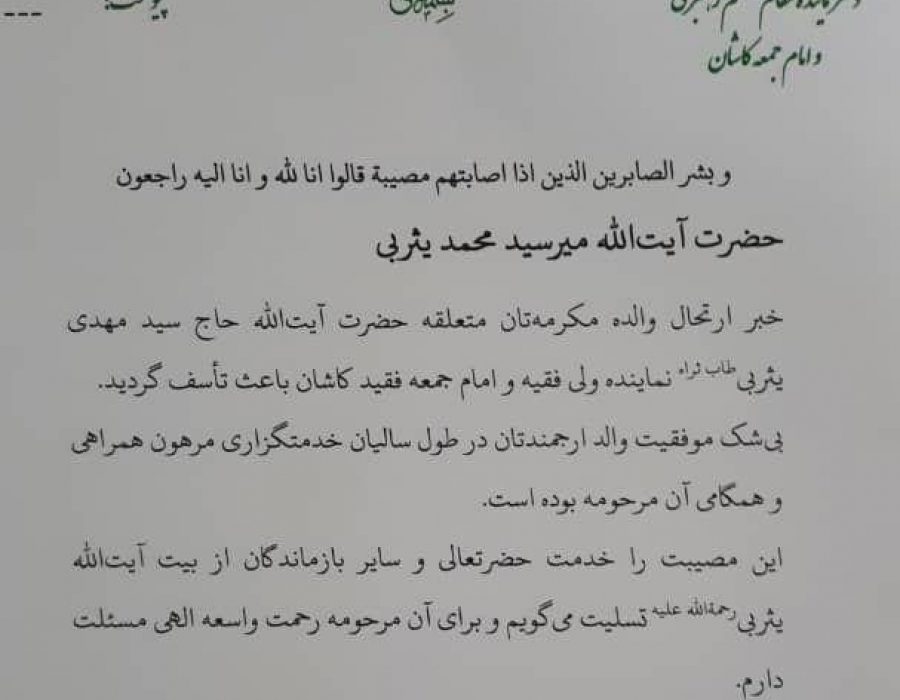 و امام جمعه کاشان
و بشر الصابرین الذین اذا اصابتهم مصیبة قالوا انا لله و انا الیه راجعون
حضرت آیت‌الله میرسید محمد یثربی
خبر ارتحال والده مکرمه‌تان متعلقه حضرت آیت‌الله حاج سید مهدی
یثربی طاب ثراه نماینده ولی فقیه و امام جمعه فقید کاشان باعث تأسف گردید.
بی‌شک موفقیت والد ارجمندتان در طول سالیان خدمتگزاری مرهون همراهی
و همگامی آن مرحومه بوده است.
این مصیبت را خدمت حضرتعالی و سایر بازماندگان از بیت آیت‌الله
یثربی رحمةالله علیه تسلیت می‌گویم و برای آن مرحومه رحمت واسعه الهی مسئلت
دارم.